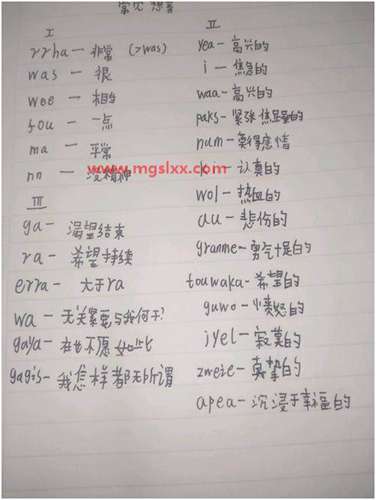 常见想音
I
rrha — 非常 (>was)
was — 很
wee — 相当
fou — 一点
ma — 平常
nn — 没精神
III
ga — 渴望结束
ra — 希望持续
erra — 大于ra
wa — 无关紧要与我何干?
gaya — 在也不愿如此
gagis — 我怎样都无所谓
II
yea — 高兴的
i — 焦急的
waa — 高兴的
paks — 紧张 焦虑的
num — 莫得感情
k — 认真的
wol — 热血的
au — 悲伤的
granme — 勇气十足的
touwaka — 希望的
guwo — 愤怒的
iyel — 寂寞的
zweie — 真挚的
apea — 沉浸于幸福的
www.mgslxx.com